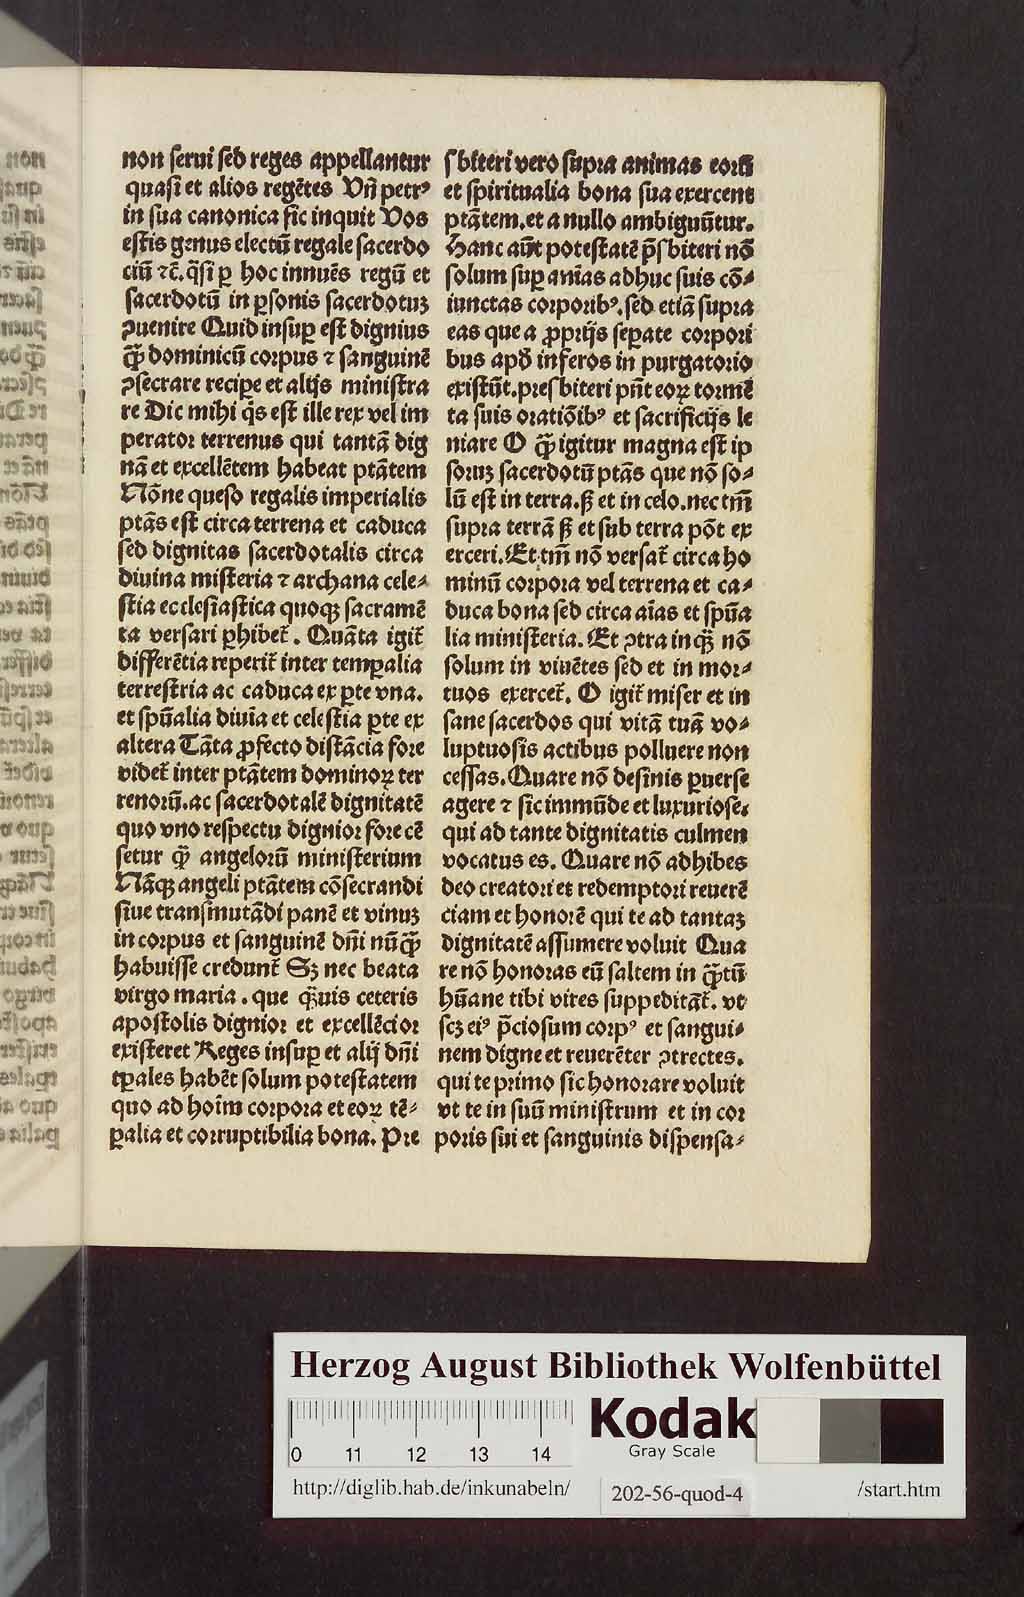 non serui sed reges appellantur
quasi et alios regētes Vñ petrꝰ
in sua canonica sic inquit Vos
estis genus electū regale sacerdo
ciū ⁊c̄. q̄si ꝑ hoc innuēs regū et
sacerdotū in ꝑsonis sacerdotuꝫ
ꝯuenire Quid insuꝑ est dignius
qͣ̄ dominicū corpus ⁊ sanguinē
ꝯsecrare recipe et alijs ministra
re Dic mihi q̇s est ille rex vel im
perator terrenus qui tantā dig
nā et excellētem habeat ptātem
Nōne queso regalis imperialis
ptās est circa terrena et caduca
sed dignitas sacerdotalis circa
diuina misteria ⁊ archana cele⸗
stia ecclesiastica quoqꝫ sacramē
ta versari ꝑhibet̄. Quāta igit̄
differētia reperit̄ inter temꝑalia
terrestria ac caduca ex ꝑte vna.
et spūalia diuīa et celestia ꝑte ex
altera Tāta ꝓfecto distācia fore
videt̄ inter ptātem dominoꝝ ter
renorū.ac sacerdotalē dignitatē
quo vno respectu dignior fore cē
setur qͣ̄ angelorū ministerium
Nāqꝫ angeli ptātem cōsecrandi
siue transmutādi panē et vinuꝫ
in corpus et sanguinē dn̄i nūqͣ̄
habuisse credunt̄ Sꝫ nec beata
virgo maria. que qͣ̄uis ceteris
apostolis dignior et excellēcior
existeret Reges insuꝑ et alij dn̄i
tꝑales habēt solum potestatem
quo ad hoīm corpora et eoꝝ tē⸗
ꝑalia et corruptibilia bona. Pre
sbiteri vero supra animas eorū
et spiritualia bona sua exercent
ptātem.et a nullo ambiguūtur.
Hanc aūt potestatē p̄sbiteri nō
solum suꝑ anīas adhuc suis cō⸗
iunctas corporibꝰ.sed etiā supra
eas que a ꝓprijs seꝑate corpori
bus apđ inferos in purgatorio
existūt.presbiteri pn̄t eoꝝ tormē
ta suis oratiōibꝰ et sacrificijs le
niare O qͣ̄ igitur magna est ip
soruꝫ sacerdotū ptās que nō so⸗
lū est in terra.ꝭ et in celo.nec tm̄
supra terrā ꝭ et sub terra pōt ex
erceri.Et tm̄ nō versat̄ circa ho
minū corpora vel terrena et ca⸗
duca bona sed circa aīas et spūa
lia ministeria. Et ꝯtra inqͣ̄ nō
solum in viuētes sed et in mor⸗
tuos exercet̄. O igit̄ miser et in
sane sacerdos qui vitā tuā vo⸗
luptuosis actibus polluere non
cessas.Quare nō desinis ꝑuerse
agere ⁊ sic immūde et luxuriose.
qui ad tante dignitatis culmen
vocatus es. Quare nō adhibes
deo creatori et redemptori reuerē
ciam et honorē qui te ad tantaꝫ
dignitatē assumere voluit Qua
re nō honoras eū saltem in qͣ̄tū
hūane tibi vires suppeditāt̄. vt
scꝫ eiꝰ p̄ciosum corpꝰ et sangui⸗
nem digne et reuerēter ꝯtrectes.
qui te primo sic honorare voluit
vt te in suū ministrum et in cor
poris sui et sanguinis dispensa⸗
Herzog August Bibliothek Wolfenbüttel
Kodak
Gray Scale
0 11 12 13 14
http://diglib.hab.de/inkunabeln/ 202-56-quod-4 /start.htm